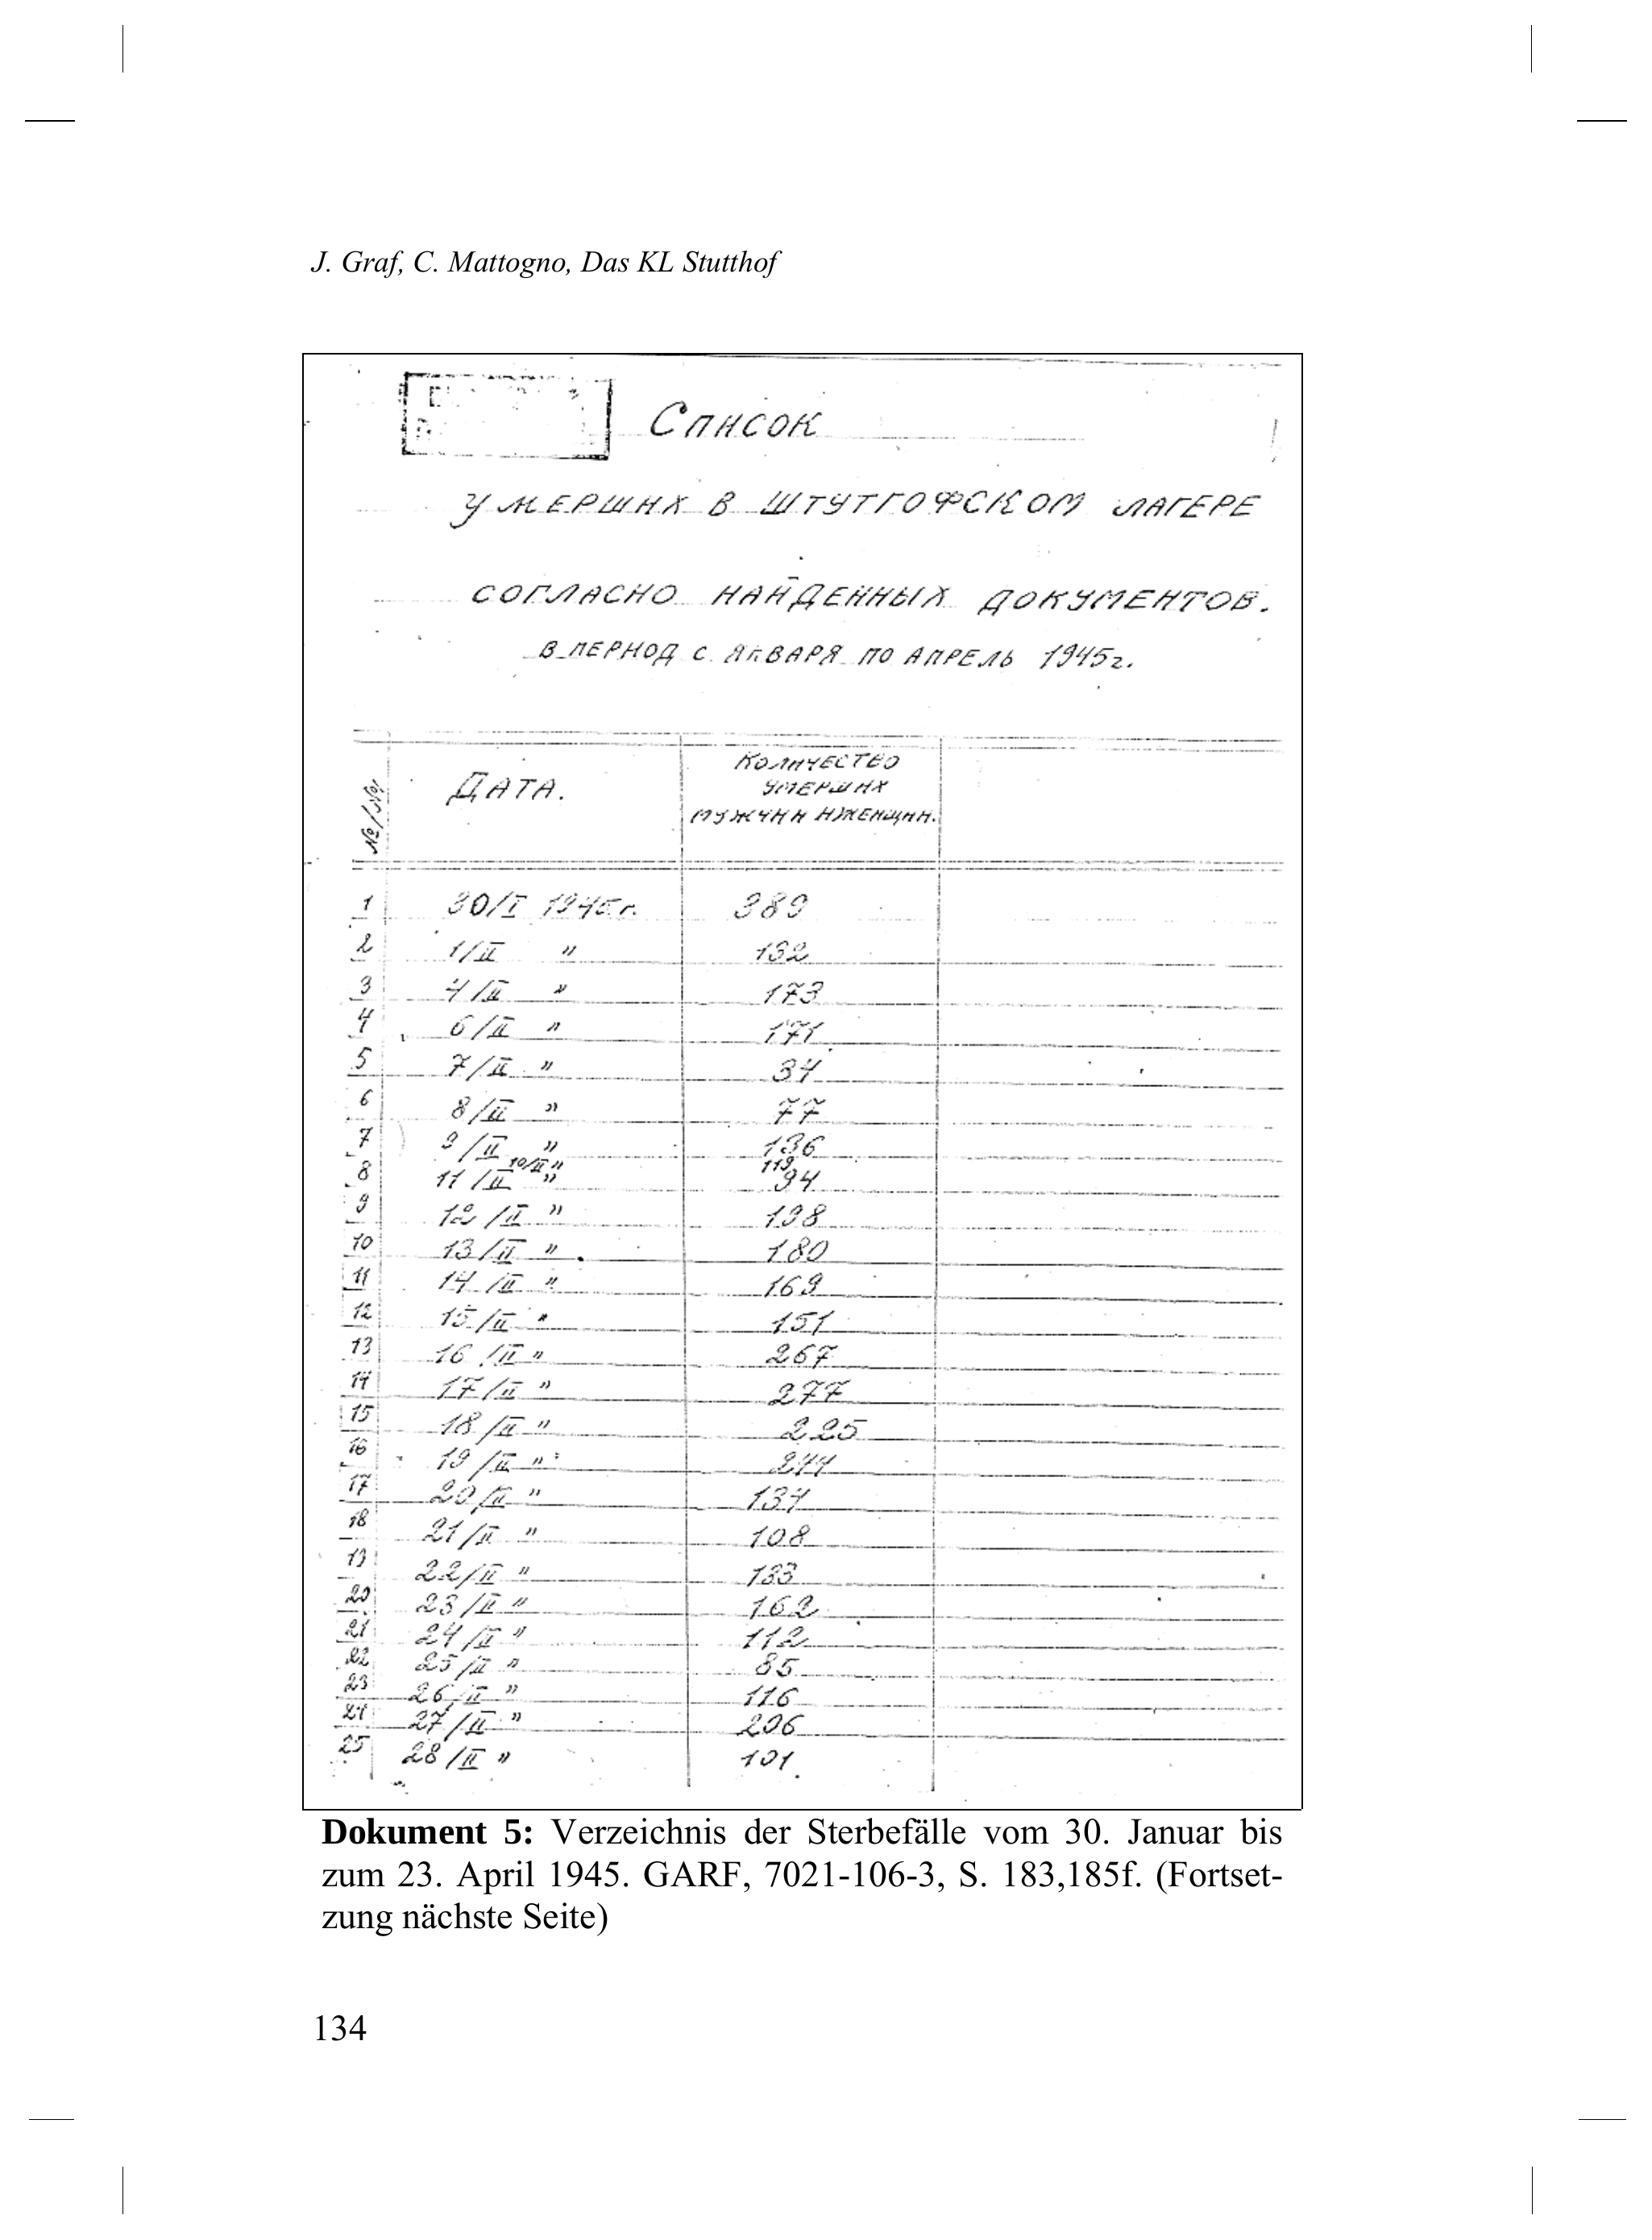 J. Graf, C. Mattogno, Das KL Stutthof
Список
умерших в Штутгофском лагере
согласно найденных документов.
в период с января по апрель 1945г.
№/№ Дата. Количество
умерших
мужчин и женщин.
1 30/I 1945г. 389
2 1/II " 132
3 4/II " 173
4 6/II " 171
5 7/II " 34
6 8/II " 77
7 9/II " 136
10/II " 119
8 11/II " 94
9 12/II " 198
10 13/II " 180
11 14/II " 169
12 15/II " 151
13 16/II " 267
14 17/II " 277
15 18/II " 225
16 19/II " 244
17 20/II " 134
18 21/II " 108
19 22/II " 133
20 23/II " 162
21 24/II " 112
22 25/II " 85
23 26/II " 116
24 27/II " 206
25 28/II " 101.
Dokument 5: Verzeichnis der Sterbefälle vom 30. Januar bis
zum 23. April 1945. GARF, 7021-106-3, S. 183,185f. (Fortset-
zung nächste Seite)
134